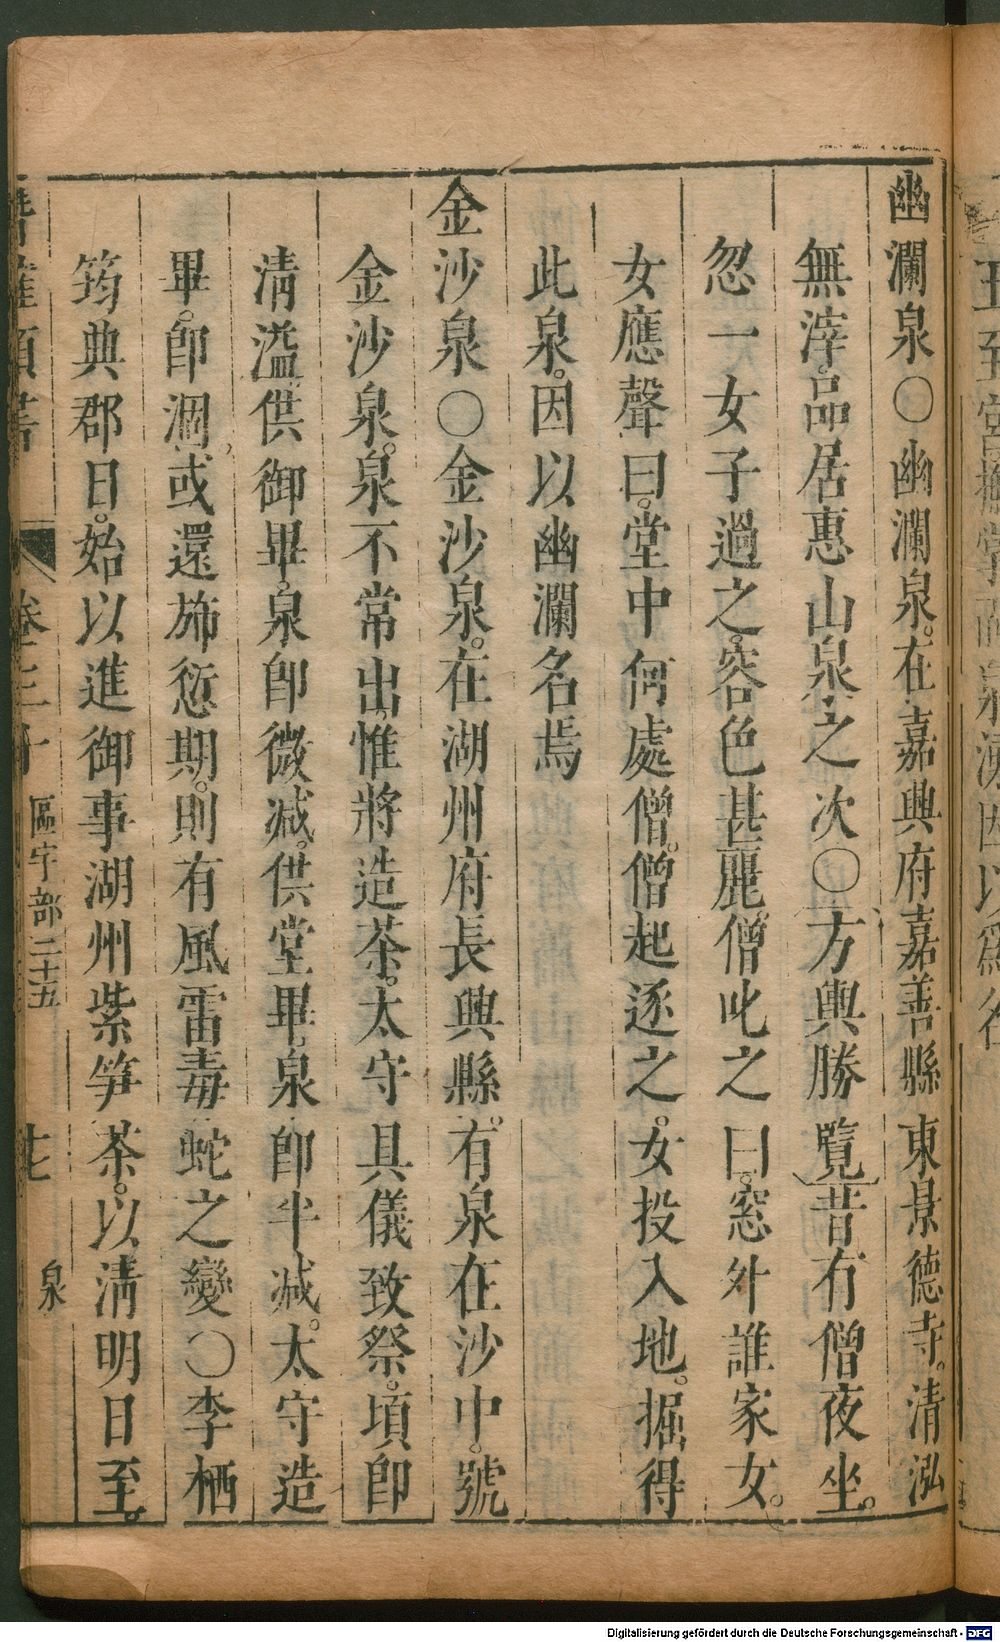 幽瀾泉〇幽瀾泉。在嘉興府嘉善縣東景德寺。清泓
無滓。品居惠山泉之次〇方輿勝覽昔有僧夜坐。
忽一女子過之。容色甚麗僧叱之曰。窓外誰家女。
女應聲曰。堂中何處僧。僧起逐之。女投入地。掘得
此泉。因以幽瀾名焉
金沙泉〇金沙泉。在湖州府長興縣。有泉在沙中。號
金沙泉。泉不常出。惟將造茶。太守具儀致祭。頃卽
淸溢。供御畢。泉卽微減。供堂畢。泉卽半減。太守造
畢。卽涸。或還斾愆期。則有風雷毒蛇之變〇李栖
筠典郡日。始以進御事湖州紫笋茶。以淸明日至。
卷三十 區宇部二十五 七 泉
至
因以爲名
Digitalisierung gefördert durch die Deutsche Forschungsgemeinschaft - DFG